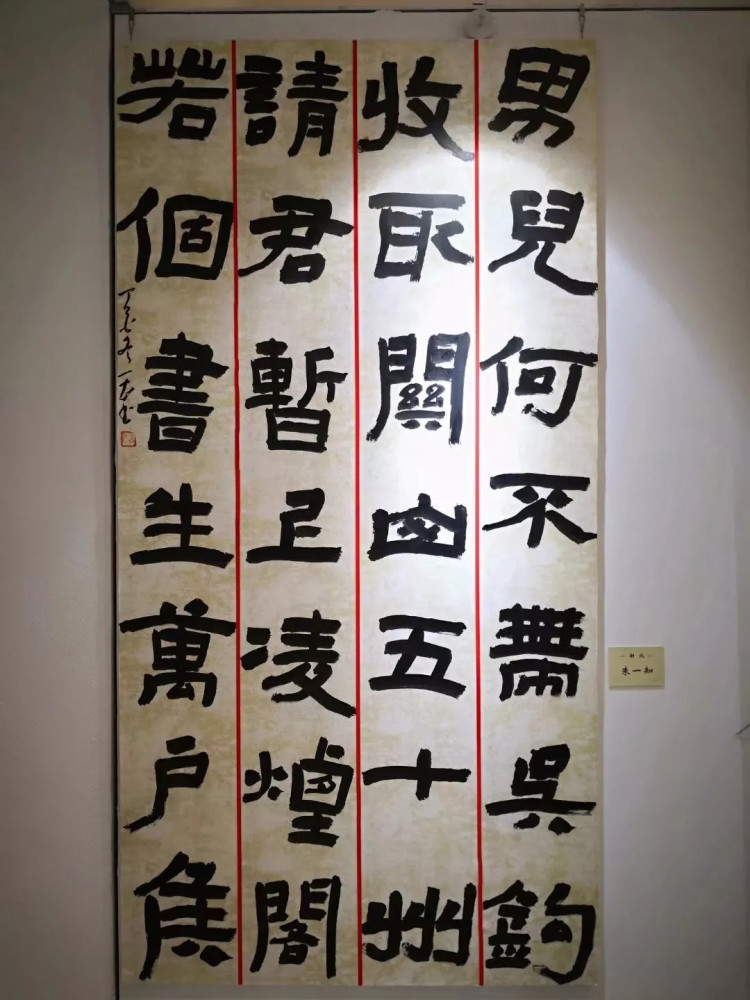 男兒何不帶吳鉤
收取關山五十州
請君暫上凌煙閣
若個書生萬戶侯
冬一知书
朱一知